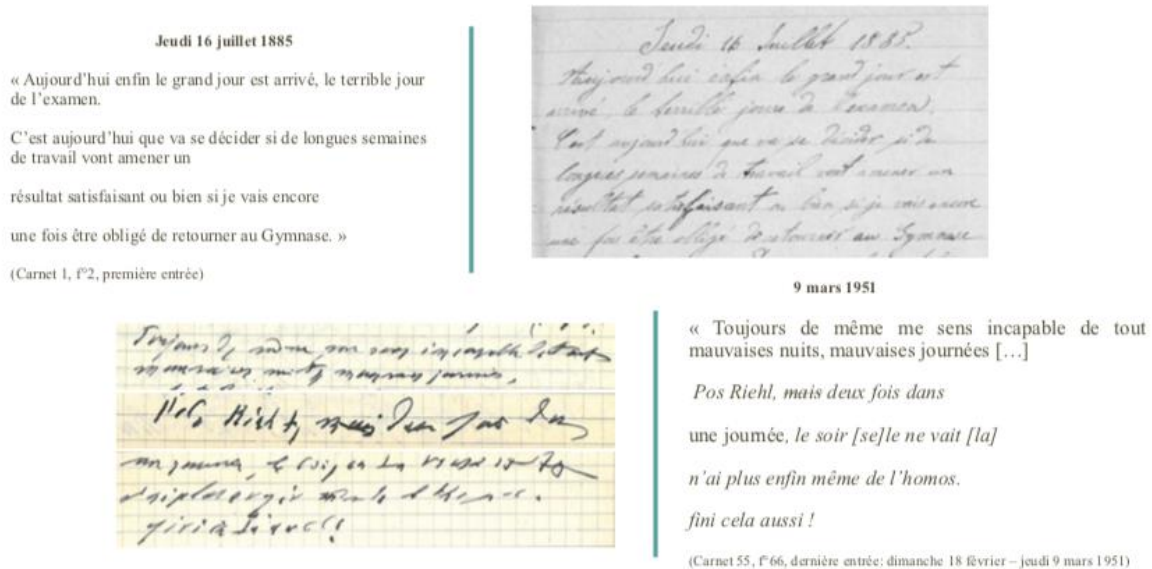 Jeudi 16 juillet 1885
« Aujourd'hui enfin le grand jour est arrivé, le terrible jour
de l'examen.
C'est aujourd'hui que va se décider si de longues semaines
de travail vont amener un
résultat satisfaisant ou bien si je vais encore
une fois être obligé de retourner au Gymnase. »
(Carnet 1, f°2, première entrée)
Jeudi 16 Juillet 1885.
Aujourd'hui enfin le grand jour est
arrivé, le terrible jour de l'examen.
C'est aujourd'hui que va se décider si de
longues semaines de travail vont amener un
résultat satisfaisant ou bien si je vais encore
une fois être obligé de retourner au Gymnase
9 mars 1951
« Toujours de même me sens incapable de tout
mauvaises nuits, mauvaises journées […]
Pos Riehl, mais deux fois dans
une journée, le soir [se]le ne vait [la]
n'ai plus enfin même de l'homos.
fini cela aussi !
(Carnet 55, f°66, dernière entrée: dimanche 18 février – jeudi 9 mars 1951)
Toujours de même me sens incapable de tout
mauvaises nuits mauvaises journées,
Riehl, mais deux fois dans